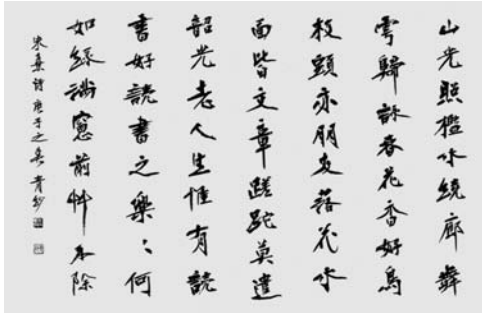 山光照檻水繞廊舞
雩歸詠春花香好鳥
枝頭亦朋友落花水
面皆文章蹉跎莫遣
韶光老人生惟有讀
書好讀書之樂〻何
如綠滿窻前艸不除
朱熹詩庚子之